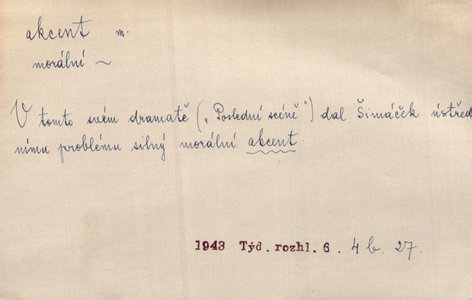 akcent m.
morální ~
V tomto svém dramatě („Poslední scéně") dal Šimáček ústřed
nímu problému silný morální akcent.
1943 Týd. rozhl. 6. 4 b. 27.